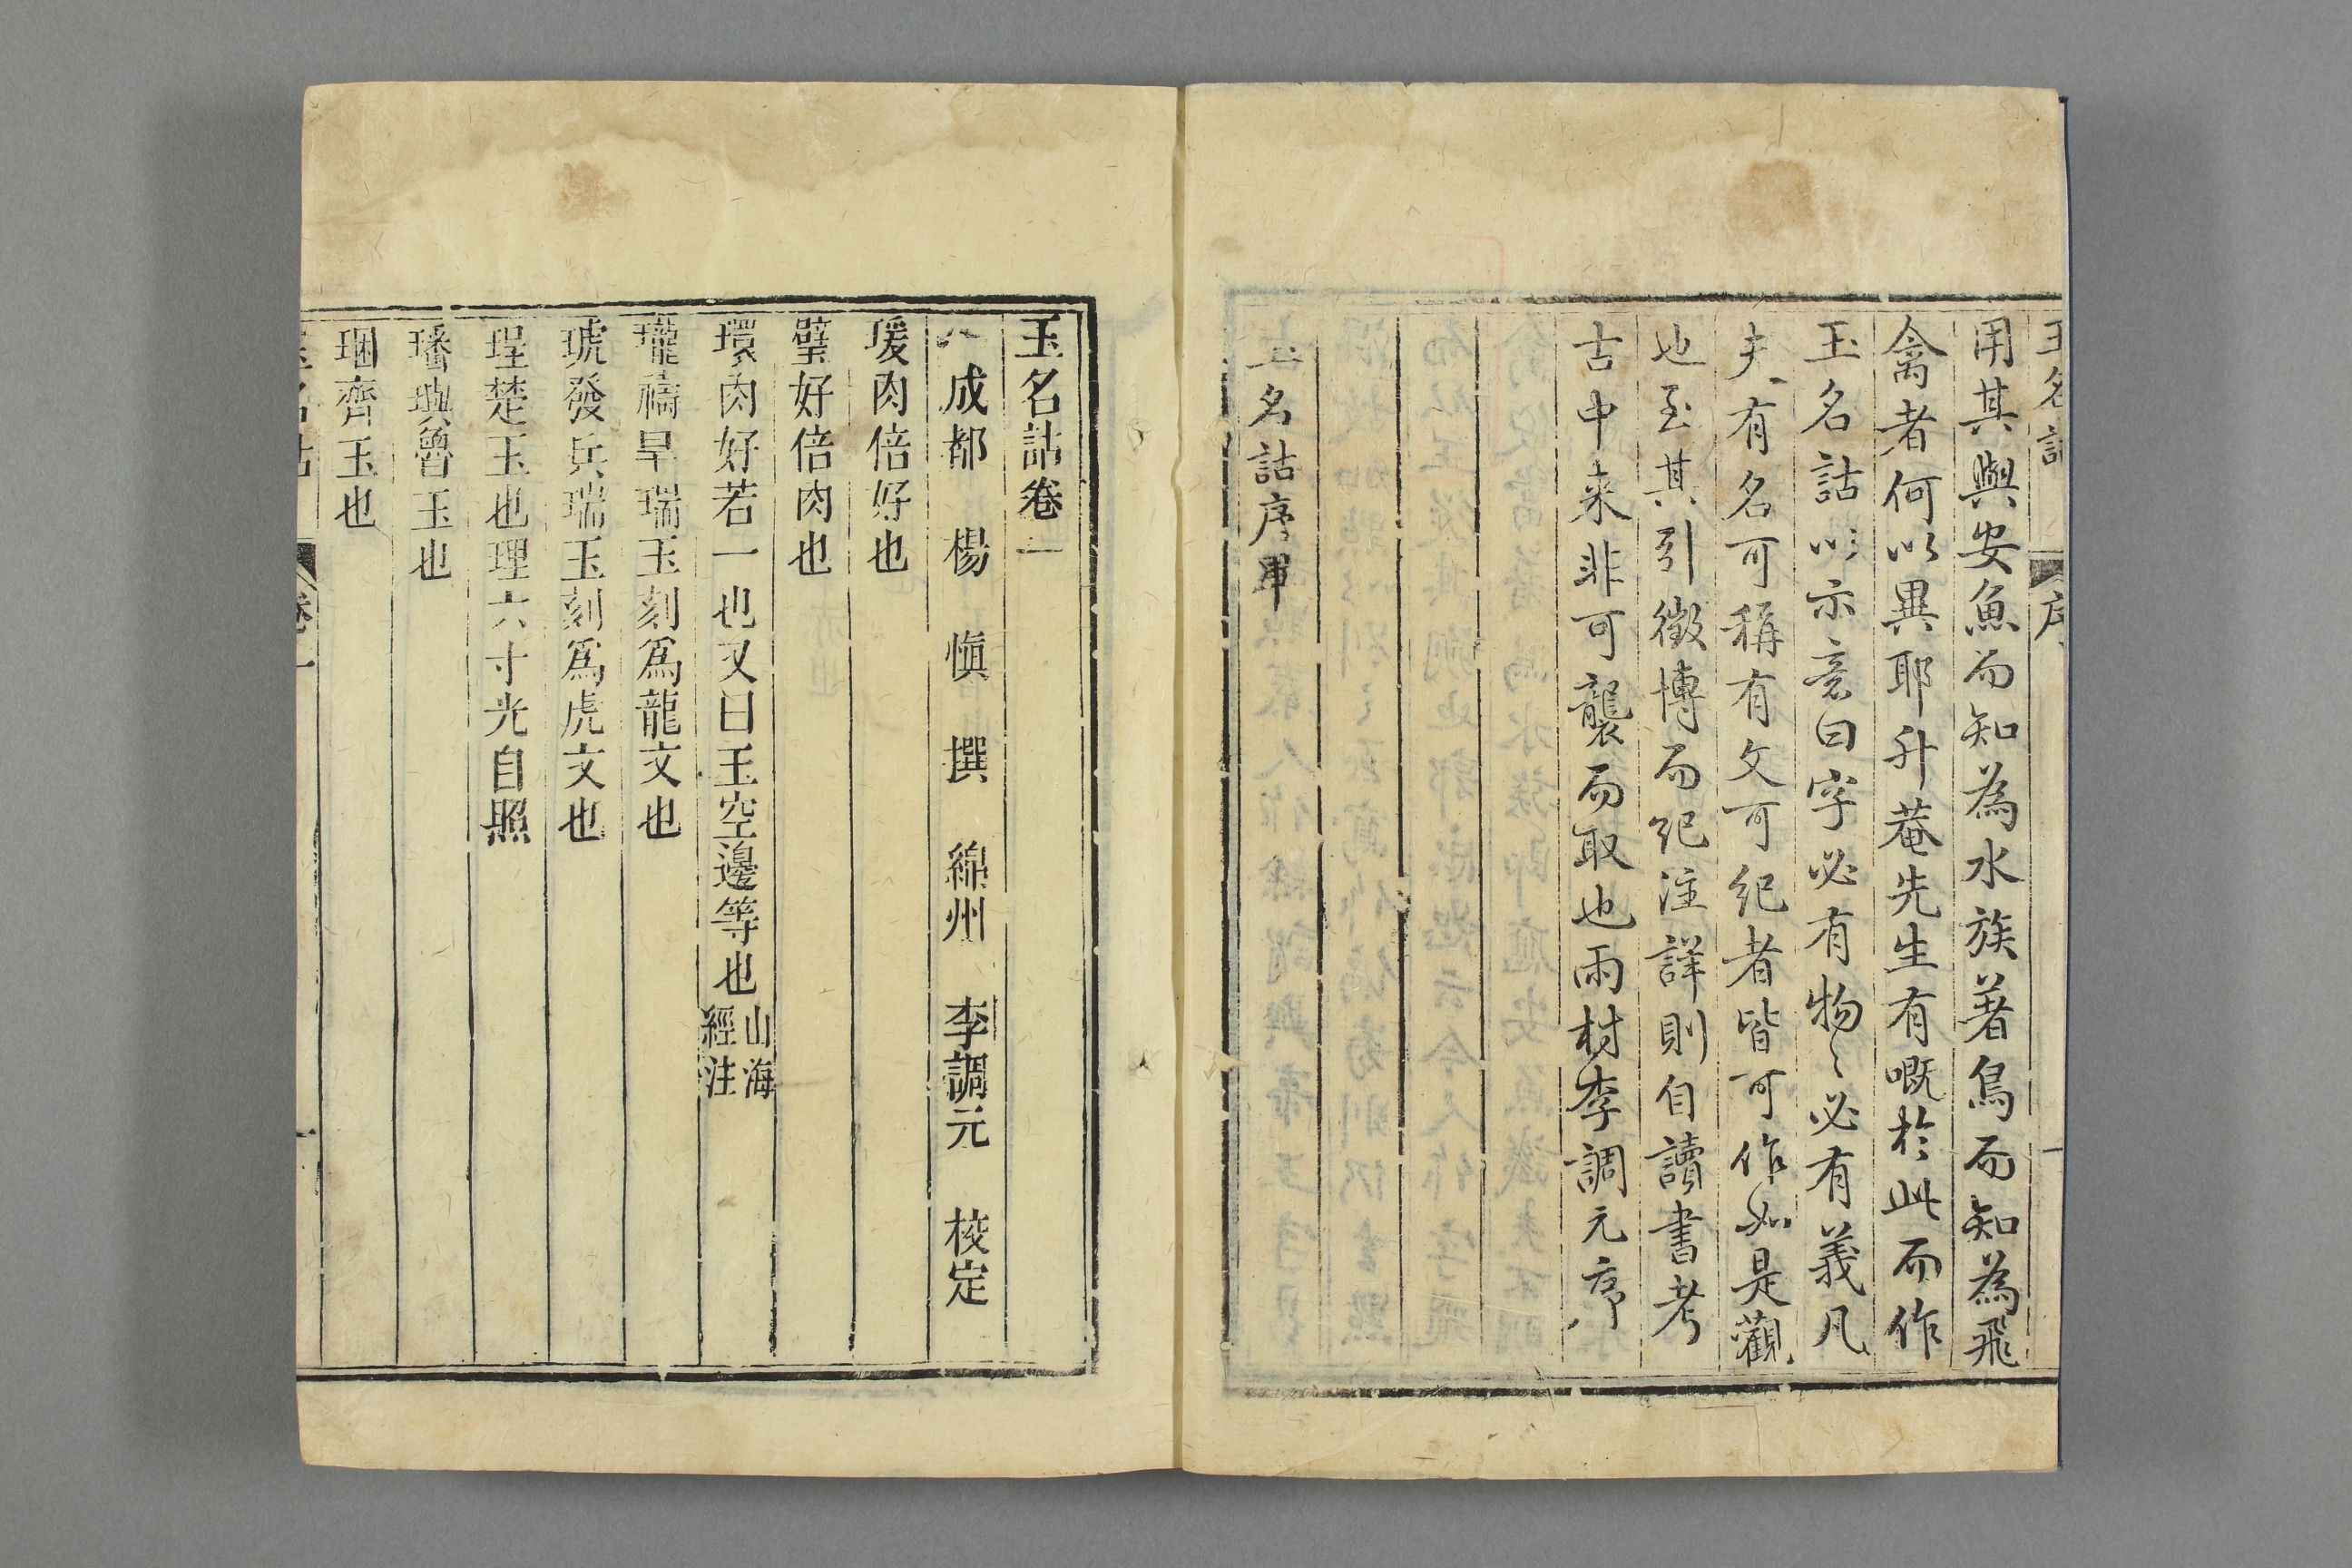 玉名詁
序
一
用其與安魚而知為水族著鳥而知為飛
禽者何以異耶升菴先生有嘅於此而作
玉名詁以示意曰字必有物〻必有義凡
夫有名可稱有文可紀者皆可作如是觀
也至其引徵博而紀注詳則自讀書考
古中来非可襲而取也雨村李調元序
玉名詁序畢
玉名詁卷一
成都 楊 慎 撰 綿州 李調元 校定
瑗肉倍好也
璧好倍肉也
環肉好若一也又曰玉空邊等也山海經注
瓏禱旱瑞玉刻爲龍文也
琥發兵瑞玉刻爲虎文也
珵楚玉也理六寸光自照
璠璵魯玉也
琨齊玉也
玉名詁
卷一
一